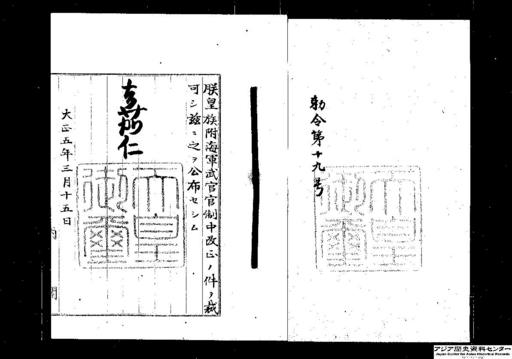 勅令第十九号
朕皇族附海軍武官官制中改正ノ件ヲ裁
可シ茲ニ之ヲ公布セシム
嘉仁
天皇御璽
大正五年三月十五日
内閣
アジア歴史資料センター
Japan Center for Asian Historical Records